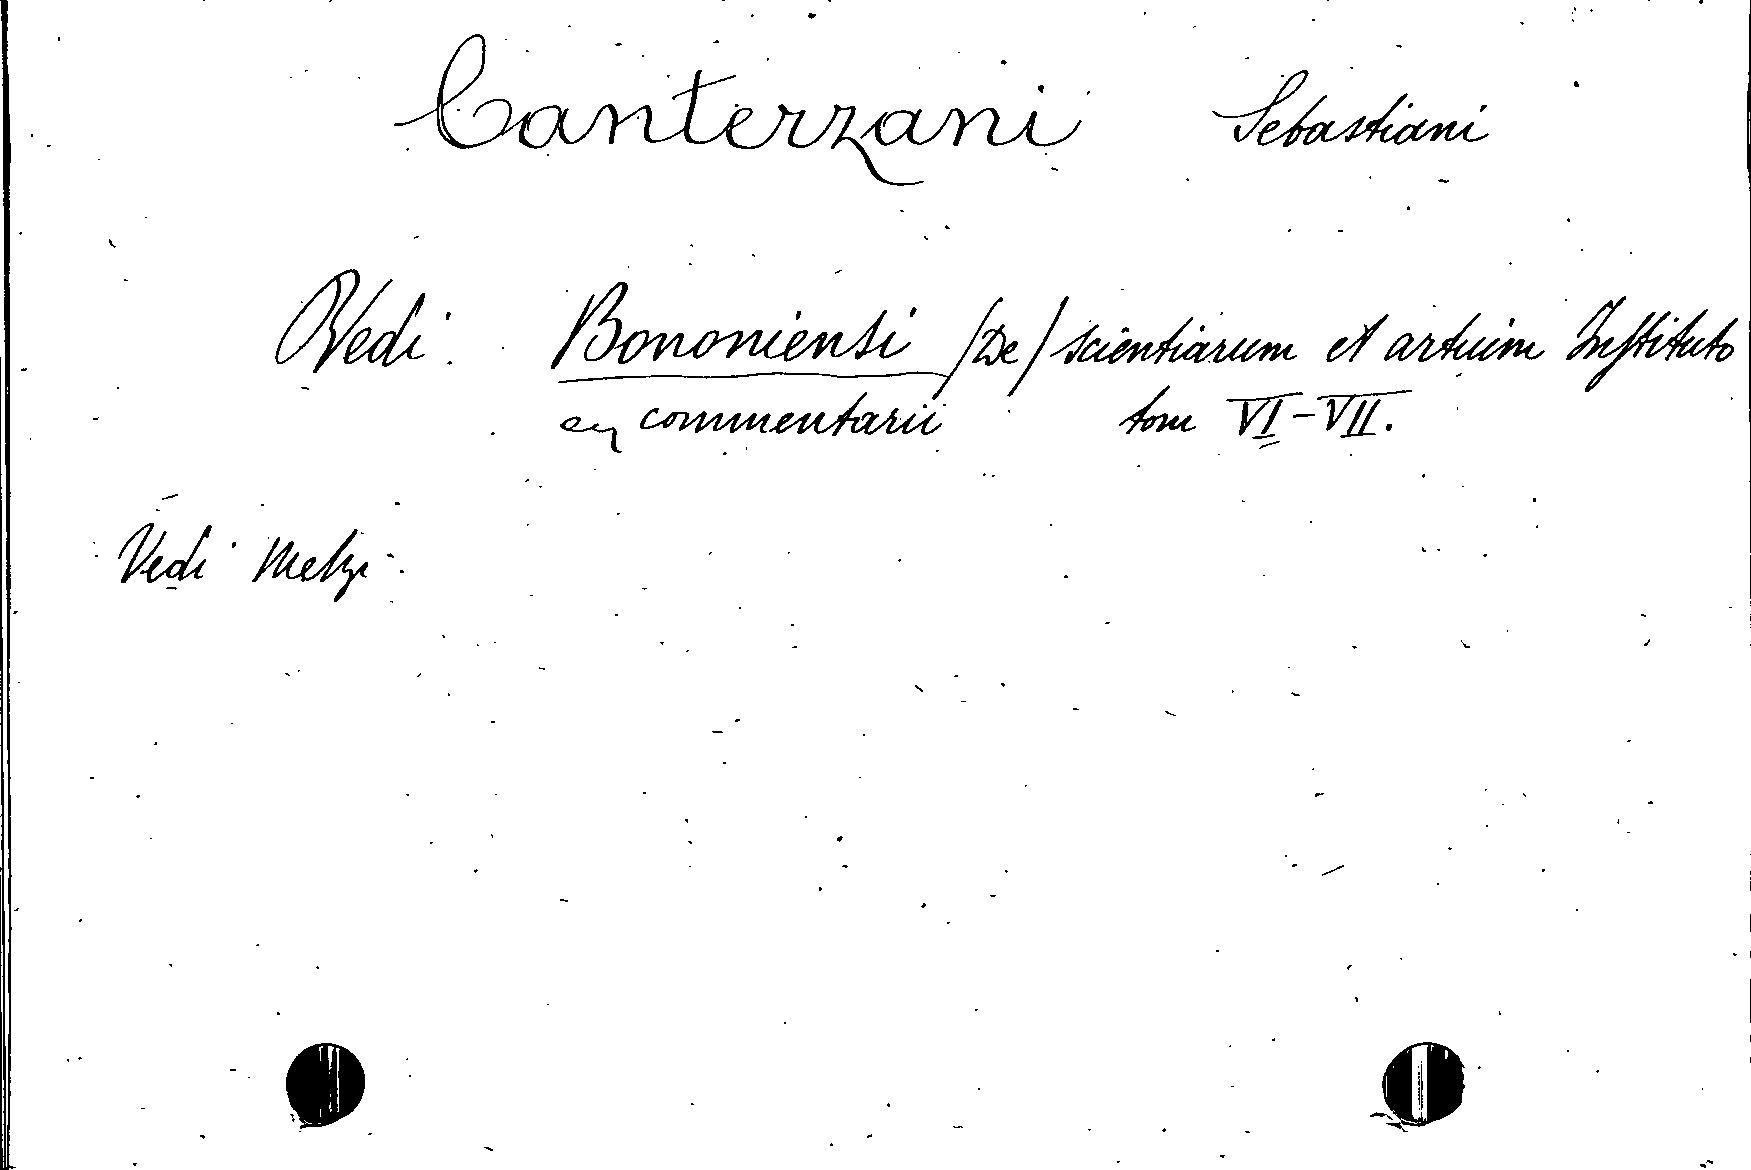 Canterzani Sebastiani
Vedi Bononiensi /De/ scientiarum et artium Instituto
commentarii tom VI-VII.
Vedi Melzi